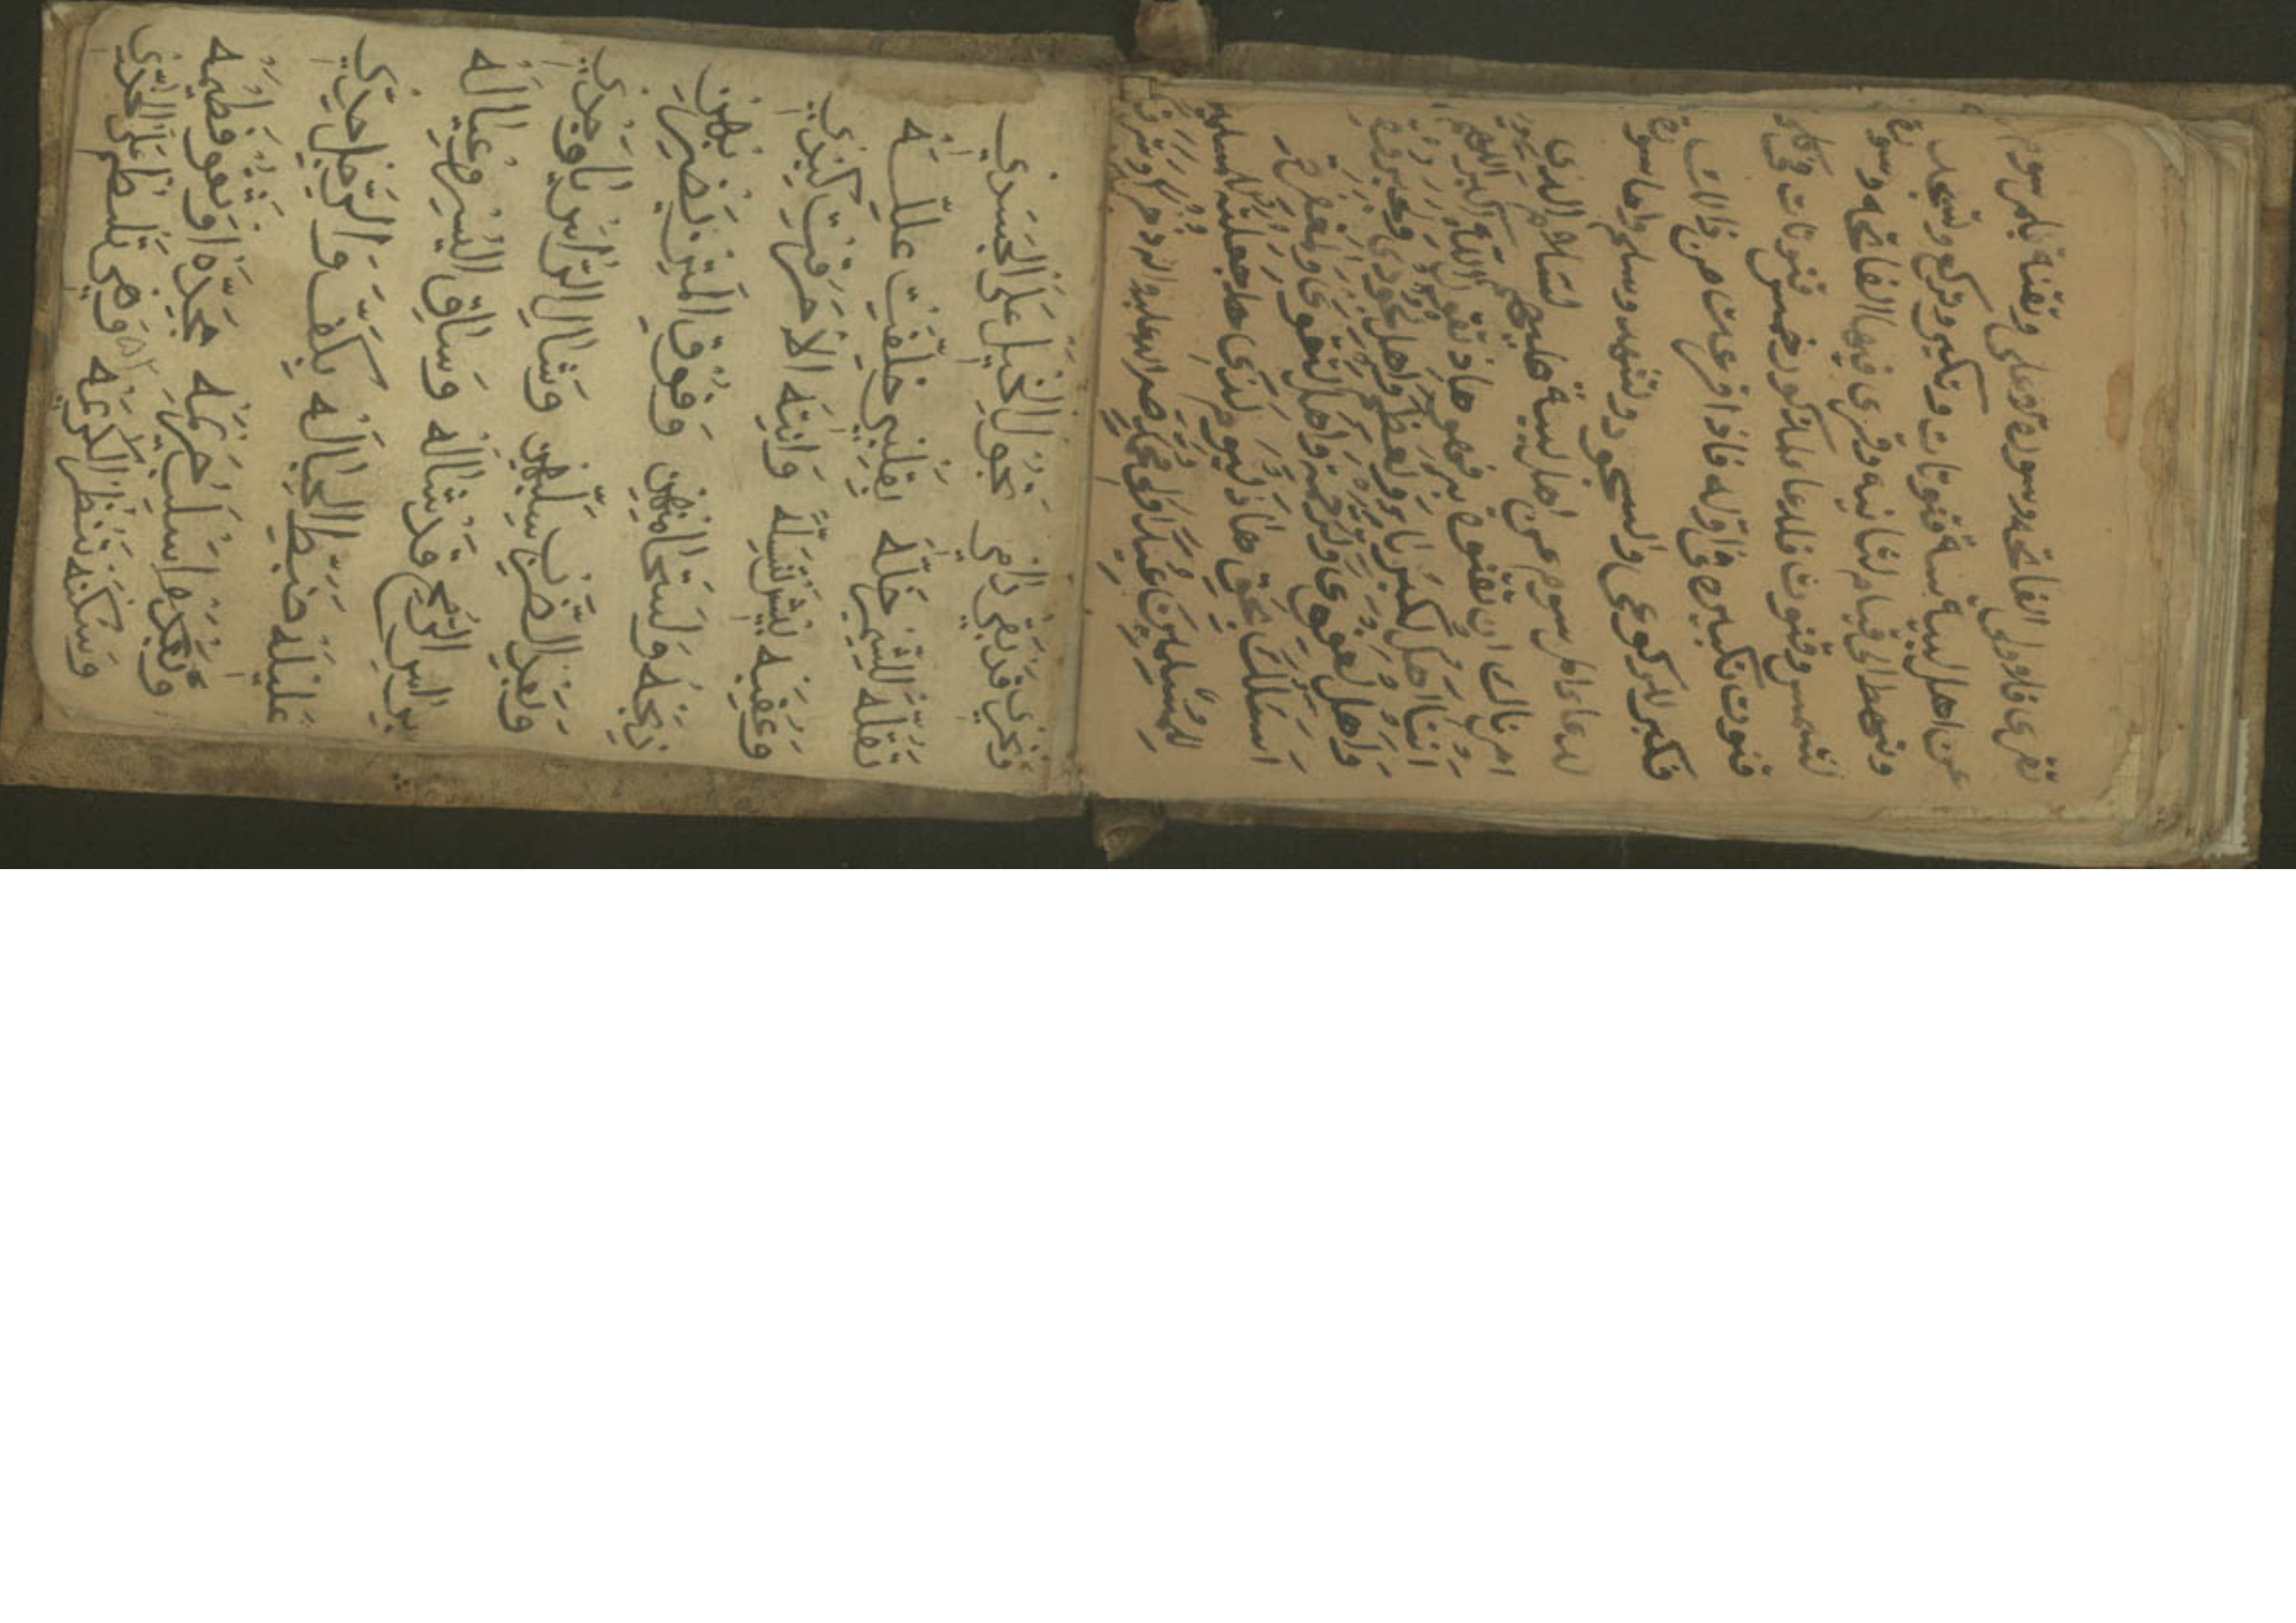 تقرى فالاولى الفاتحه وسورة وعلى وتقنة بلمرسوم
عن اهل لبية ستة قنوتات وتكبر وتركع وتسجد
وتنهظ الى قيام لثانيه وقرى فيها الفاتحه وسورة
لشمس وقنوت فلدعا ملذكور خمس قنوتات وفي كل
قنوت تكبيره في اوله فاذا فرغت من ذالك
فكبر للركوعى ولسجود وتشهد وسلم واما سورة
لدعا مل سوم عن اهل لبية عليهم لسلام الذي
امرناك ان تقنوة به فهو هاذ تقول الله اكبر اللهم
انتا اهل لكبرياء ولعظمة واهل لجودي ولجبروة
واهل لعفوى ولرحمة واهل لتقوى ولمغفرة
اسئلك بحق هاذ ليوم لذي جعلته
للمسلمين عيدا ولمحمد صل الله عليه واله ذخرا
وتجري قد بقى رمي تجول الخيل على الجسدي
تقله للشمر خله بقلبي خلفت عله
وعفيه وانيه الامرقت كبدي
ولستحا منهن وفوق المتن
ولعبد الضرب سلبهن وشال الراس يا وجدي
بيراس الرمح قد شاله وساق اليسر وعياله
عليله الحباله بكف والرجل حدي
سلب حرمه
وسكنه تنظر الكرمه وهي تلطم على الخدي